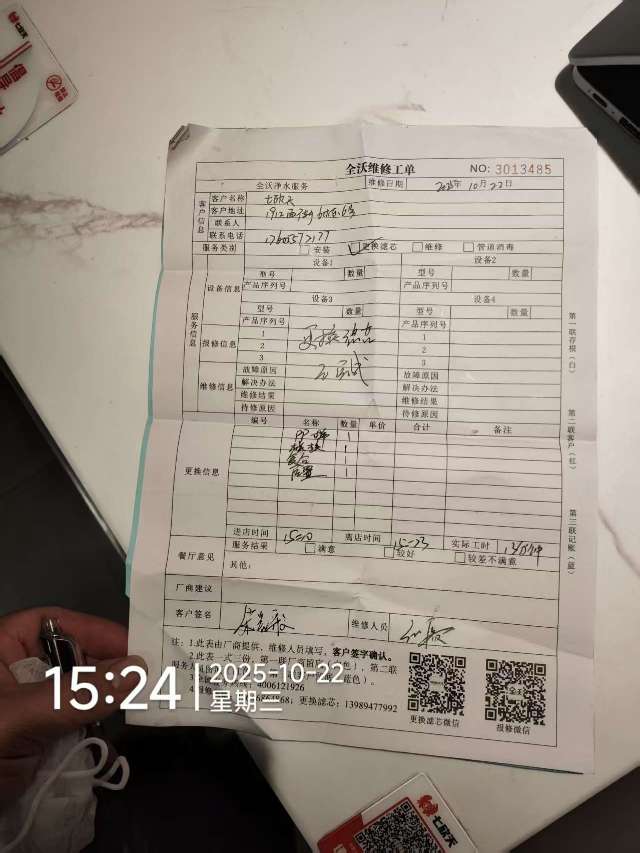 全沃维修工单
NO: 3013485
全沃净水服务 维修日期 2025年10月22日
客户信息
客户名称 七欣天
客户地址
联系人
联系电话
服务类别 安装 更换滤芯 维修 管道消毒
服务信息
设备信息
设备1 设备2
型号 数量 型号 数量
产品序列号 产品序列号
设备3 设备4
型号 数量 型号 数量
产品序列号 产品序列号
报修信息
1 更换滤芯 1
2 2
3 3
维修信息
故障原因 故障原因
解决办法 解决办法
维修结果 维修结果
待修原因 待修原因
更换信息
编号 名称 数量 单价 合计 备注
PP棉 1
1
复合 1
后置 1
进店时间 15-10 离店时间 15-23 实际工时 13分钟
餐厅意见
服务结果 满意 较好 较差不满意
其他:
厂商建议
客户签名 维修人员
注：1.此表由厂商提供、维修人员填写，客户签字确认。
2.此表一式三份，第一联
第二联
4006121926
更换滤芯：13989477992
更换滤芯微信 报修微信
第一联存根（白） 第二联客户（红） 第三联记账（蓝）
15:24
2025-10-22
星期三
七欣天
七欣天